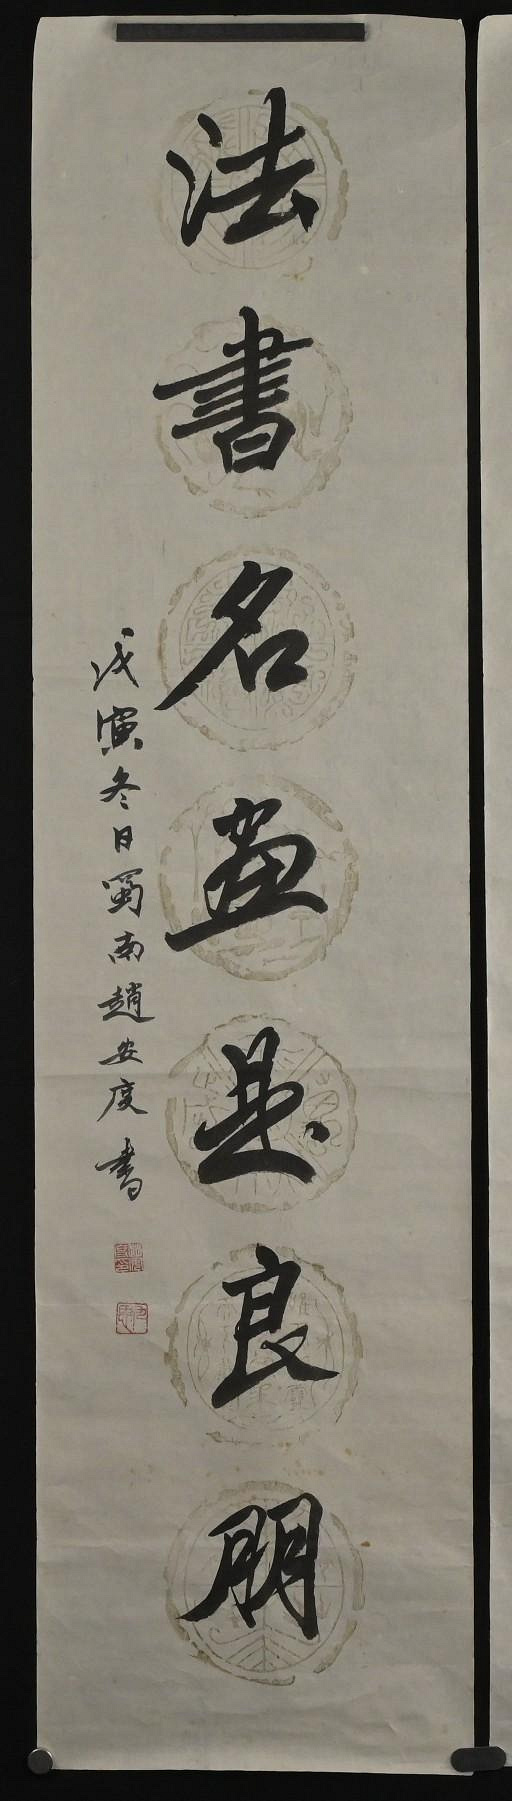 法書名畫是良朋
戊寅冬日蜀南趙安度書